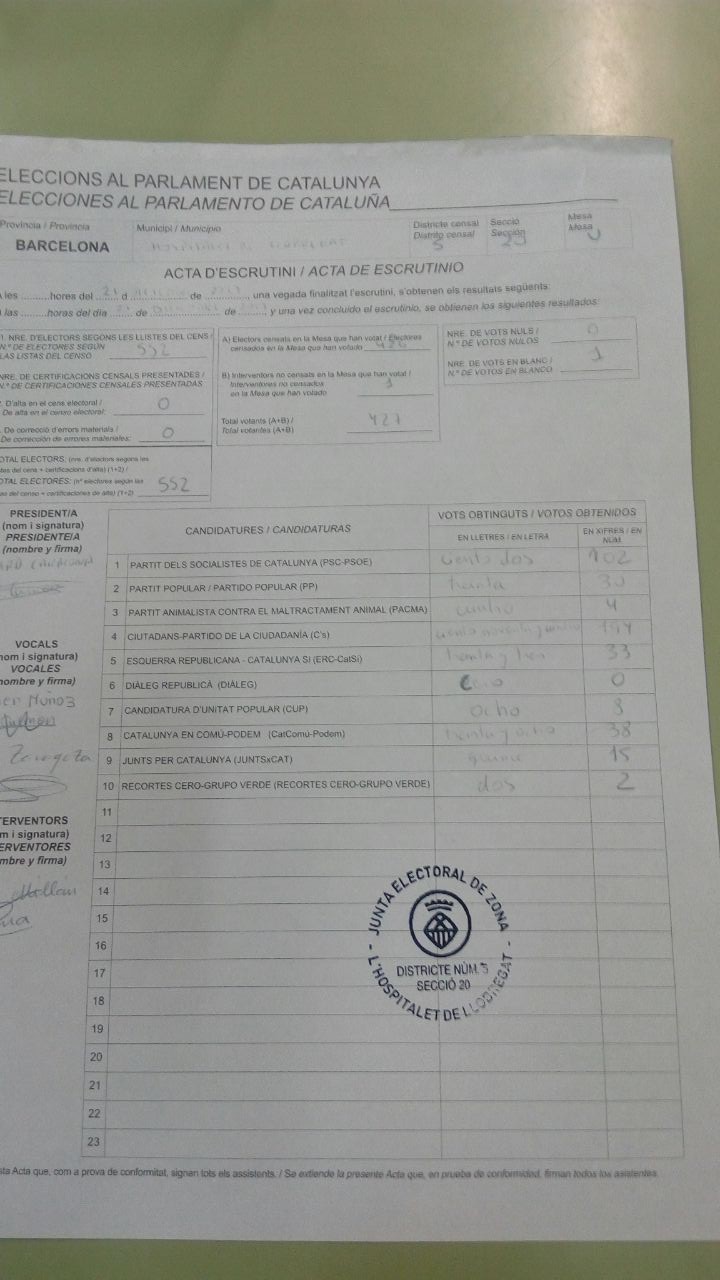 ELECCIONS AL PARLAMENT DE CATALUNYA
ELECCIONES AL PARLAMENTO DE CATALUÑA
Provincia / Provincia
BARCELONA
Municipi / Municipio
Districte censal
Distrito censal
5
Secció
Sección
Mesa
Mesa
U
ACTA D'ESCRUTINI / ACTA DE ESCRUTINIO
les .........hores del 21 d ... de ..., una vegada finalitzat l'escrutini, s'obtenen els resultats següents:
las .........horas del día 21 de ... de ... y una vez concluido el escrutinio, se obtienen los siguientes resultados:
1. NRE. D'ELECTORS SEGONS LES LLISTES DEL CENS /
N.º DE ELECTORES SEGÚN
LAS LISTAS DEL CENSO
552
NRE. DE CERTIFICACIONS CENSALS PRESENTADES /
N.º DE CERTIFICACIONES CENSALES PRESENTADAS
D'alta en el cens electoral /
De alta en el censo electoral:
0
De correcció d'errors materials /
De corrección de errores materiales:
0
TOTAL ELECTORS: (nre. d'electors segons les
del cens + certificacions d'alta) (1+2) /
TOTAL ELECTORES: (nº electores según las
del censo + certificaciones de alta) (1+2)
552
A) Electors censats en la Mesa que han votat / Electores
censados en la Mesa que han votado 426
B) Interventors no censats en la Mesa que han votat /
Interventores no censados
en la Mesa que han votado
1
Total votants (A+B) /
Total votantes (A+B)
427
NRE. DE VOTS NULS /
N.º DE VOTOS NULOS
0
NRE. DE VOTS EN BLANC /
N.º DE VOTOS EN BLANCO
1
PRESIDENT/A
(nom i signatura)
PRESIDENTE/A
(nombre y firma)
VOCALS
nom i signatura)
VOCALES
nombre y firma)
Muñoz
Zaragoza
TERVENTORS
m i signatura)
ERVENTORES
mbre y firma)
CANDIDATURES / CANDIDATURAS
VOTS OBTINGUTS / VOTOS OBTENIDOS
EN LLETRES / EN LETRA
EN XIFRES / EN NÚM.
1 PARTIT DELS SOCIALISTES DE CATALUNYA (PSC-PSOE) ciento dos 102
2 PARTIT POPULAR / PARTIDO POPULAR (PP) treinta 30
3 PARTIT ANIMALISTA CONTRA EL MALTRACTAMENT ANIMAL (PACMA) cuatro 4
4 CIUTADANS-PARTIDO DE LA CIUDADANÍA (C's) ciento noventa y cuatro 194
5 ESQUERRA REPUBLICANA - CATALUNYA SI (ERC-CatSi) treinta y tres 33
6 DIÀLEG REPUBLICÀ (DIÀLEG) Cero 0
7 CANDIDATURA D'UNITAT POPULAR (CUP) ocho 8
8 CATALUNYA EN COMÚ-PODEM (CatComú-Podem) treinta y ocho 38
9 JUNTS PER CATALUNYA (JUNTSxCAT) quince 15
10 RECORTES CERO-GRUPO VERDE (RECORTES CERO-GRUPO VERDE) dos 2
11
12
13
14
15
16
17
18
19
20
21
22
23
JUNTA ELECTORAL DE ZONA
DISTRICTE NÚM. 5
SECCIÓ 20
L'HOSPITALET DE LLOBREGAT
sta Acta que, com a prova de conformitat, signen tots els assistents. / Se extiende la presente Acta que, en prueba de conformidad, firman todos los asistentes.